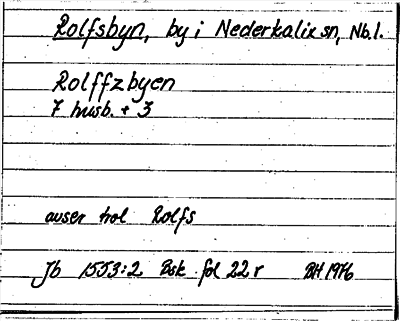 Rolfsbyn, by i Nederkalix sn, Nb.l.
Rolffzbyen
7 husb. + 3
avser hol Rolfs
Jb 1553:2 Bsk fol 22 r BH 1976